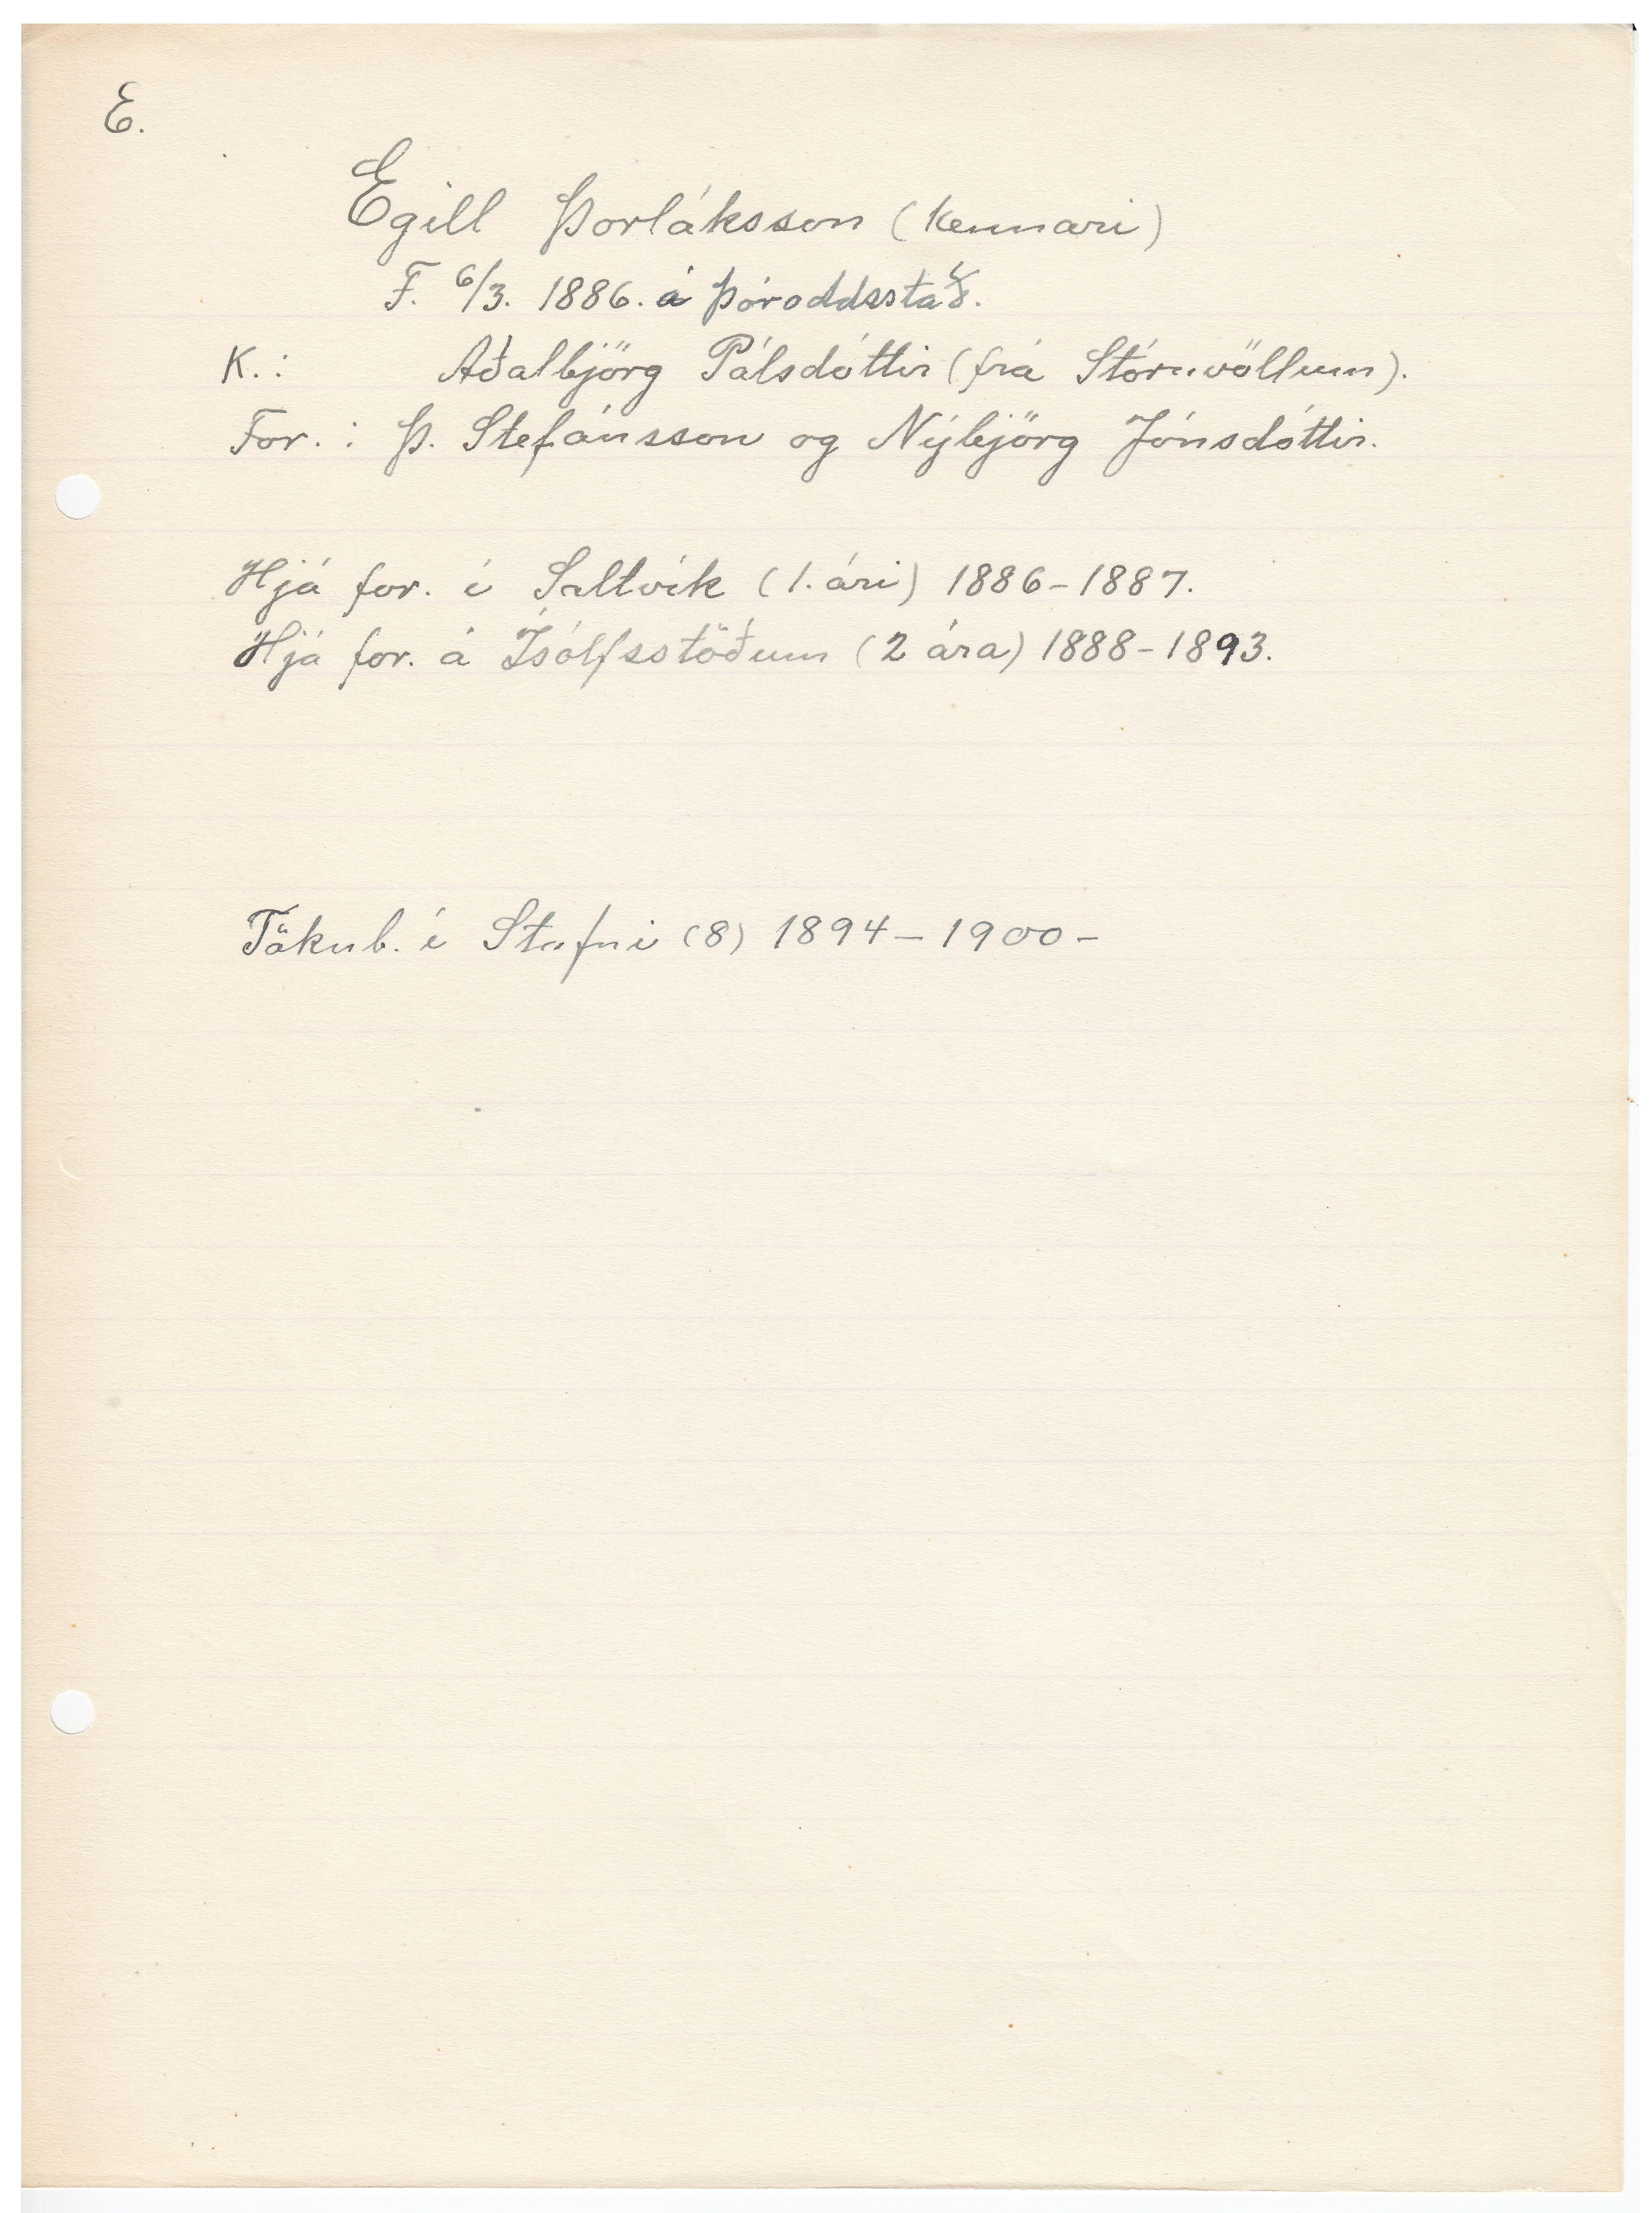 E.
Egill Þorláksson (kennari)
F. 6/3. 1886. á Þóroddsstað.
K.: Aðalbjörg Pálsdóttir (frá Stóruvöllum).
For.: Þ. Stefánsson og Nýbjörg Jónsdóttir.
Hjá for. í Saltvík (1. ári) 1886-1887.
Hjá for. á Ísólfsstöðum (2 ára) 1888-1893.
Tökub. í Stafni (8) 1894-1900-